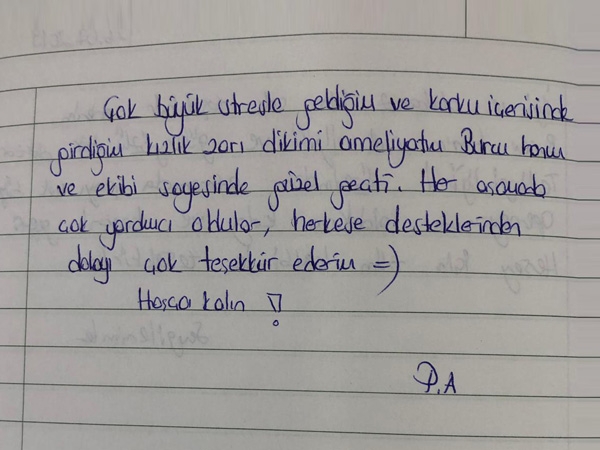 Çok büyük stresle geldiğim ve korku içerisinde
girdiğim kızlık zarı dikimi ameliyatım Burcu hanım
ve ekibi sayesinde güzel geçti. Her aşamada
çok yardımcı oldular, herkese desteklerinden
dolayı çok teşekkür ederim =)
Hoşça kalın !
P.A